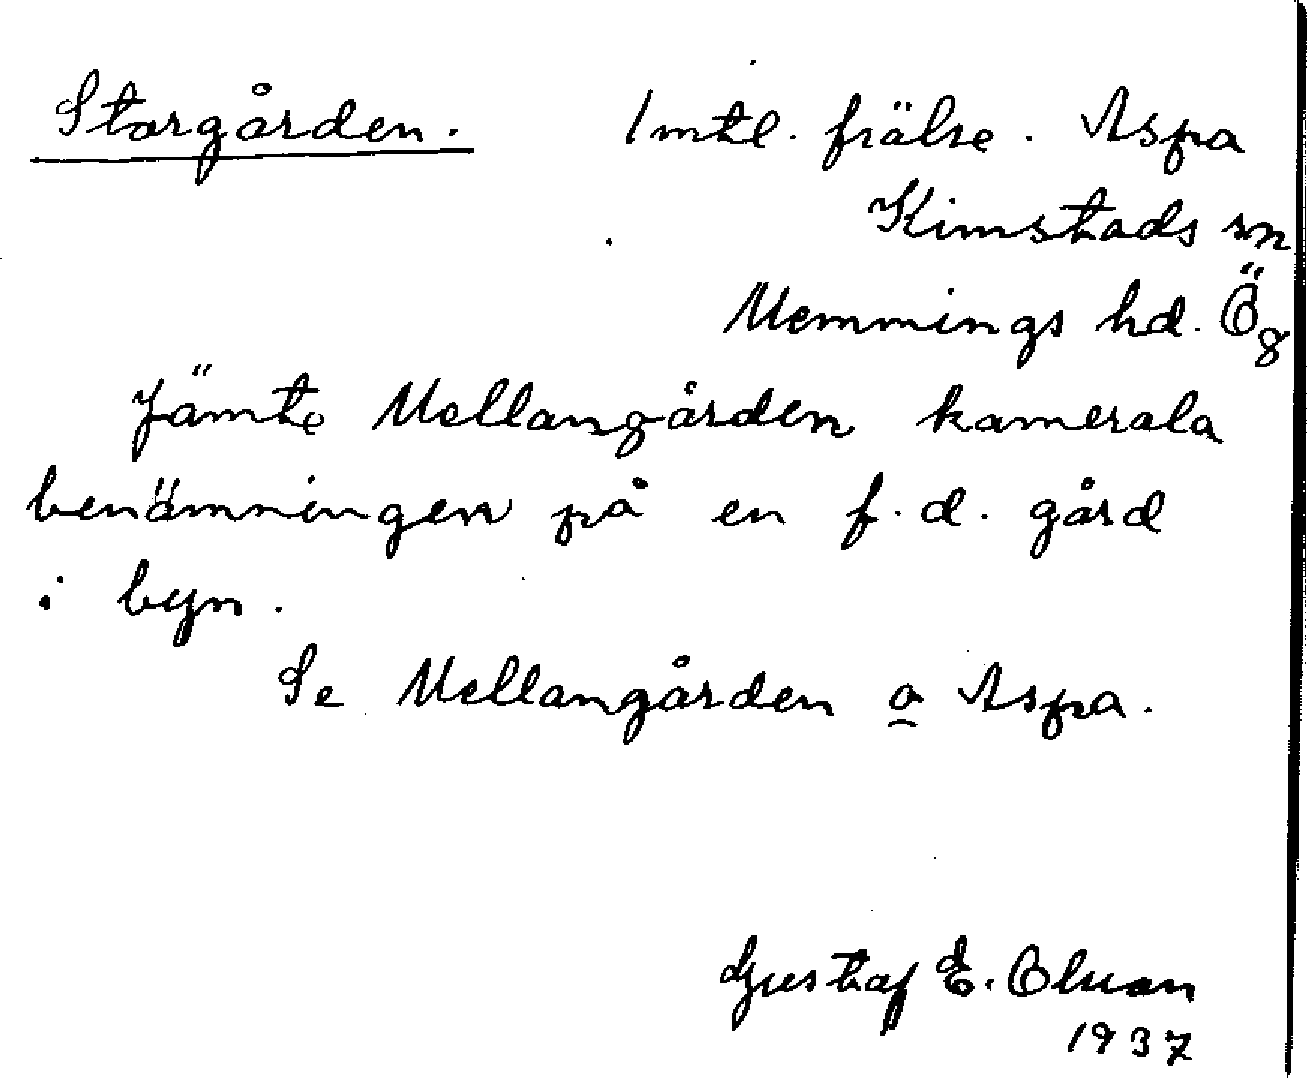 Storgården. 1mtl. frälse. Aspa
Kimstads sn
Memmings hd. Ög
Jämte Mellangården kamerala
benämningen på en f.d. gård
i byn.
Se Mellangården o Aspa.
Gustaf E. Olsson
1937